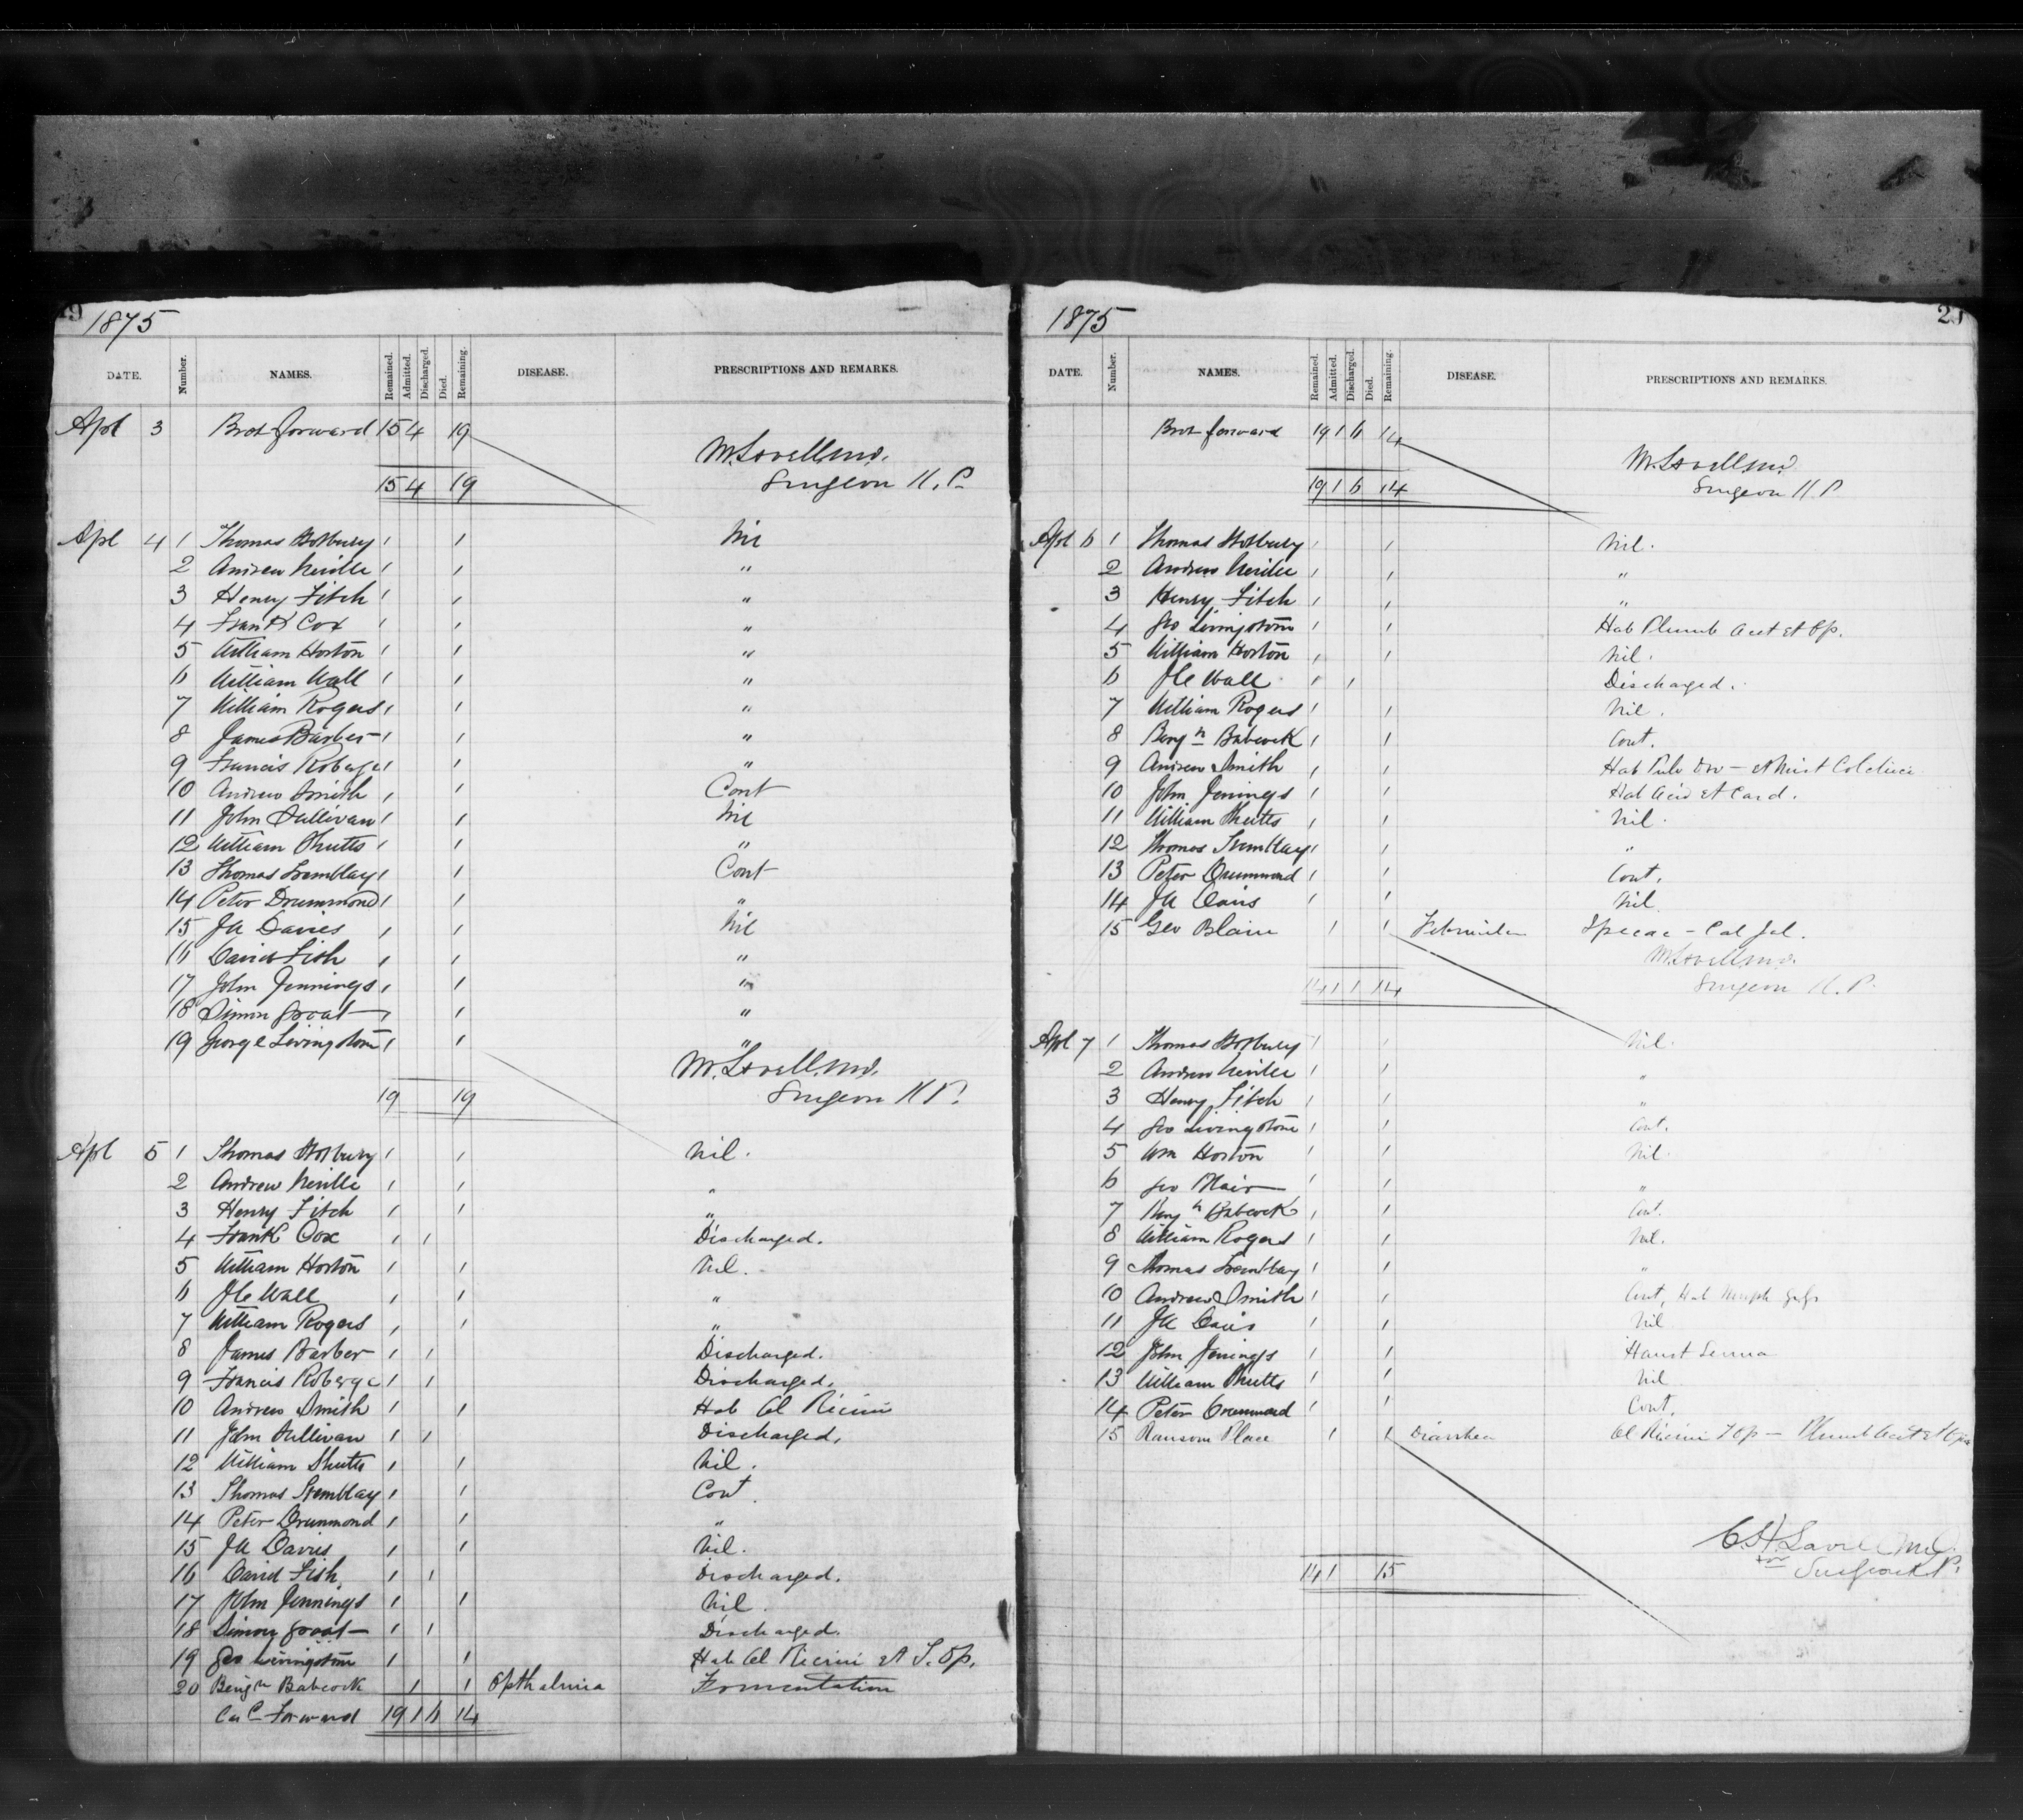 19
1875
DATE. Number. NAMES. Remained. Admitted. Discharged. Died. Remaining. DISEASE. PRESCRIPTIONS AND REMARKS.
Apl 3 Brot forward 15 4 19
M. Lavell M.D.
15 4 19 Surgeon K.P.
Apl 4 1 Thomas Hosbury 1 1 Nil
2 Andrew Neville 1 1 "
3 Henry Fitch 1 1 "
4 Frank Cox 1 1 "
5 William Horton 1 1 "
6 William Wall 1 1 "
7 William Rogers 1 1 "
8 James Barber 1 1 "
9 Francis Roberge 1 1 "
10 Andrew Smith 1 1 Cont
11 John Sullivan 1 1 Nil
12 William Shutts 1 1 "
13 Thomas Tremblay 1 1 Cont
14 Peter Drummond 1 1 "
15 JA Davies 1 1 Nil
16 David Fish 1 1 "
17 John Jennings 1 1 "
18 Simon Groat 1 1 "
19 George Livingstone 1 1 "
M. Lavell M.D.
19 19 Surgeon K.P.
Apl 5 1 Thomas Hosbury 1 1 Nil.
2 Andrew Neville 1 1 "
3 Henry Fitch 1 1 "
4 Frank Cox 1 1 Discharged.
5 William Horton 1 1 Nil.
6 Wall 1 1 "
7 William Rogers 1 1 "
8 James Barber 1 1 Discharged.
9 Francis Roberge 1 1 Discharged.
10 Andrew Smith 1 1 Hab Ol Ricini
11 John Sullivan 1 1 Discharged.
12 William Shutts 1 1 Nil.
13 Thomas Tremblay 1 1 Cont
14 Peter Drummond 1 1 "
15 JA Davies 1 1 Nil.
16 David Fish 1 1 Discharged.
17 John Jennings 1 1 Nil.
18 Simon Groat 1 1 Discharged.
19 Geo Livingstone 1 1 Hab Ol Ricini et T. Op.
20 Benjn Babcock 1 1 Opthalmia Fomentation
Card Forward 19 1 6 14
1875
DATE. Number. NAMES. Remained. Admitted. Discharged. Died. Remaining. DISEASE. PRESCRIPTIONS AND REMARKS.
Brot forward 19 1 6 14
M. Lavell M.D.
19 1 6 14 Surgeon K.P.
Apl 6 1 Thomas Hosbury 1 1 Nil.
2 Andrew Neville 1 1 "
3 Henry Fitch 1 1 "
4 Geo Livingstone 1 1 Hab Plumb Acet et Op.
5 William Horton 1 1 Nil.
6 Wall 1 1 Discharged.
7 William Rogers 1 1 Nil.
8 Benjn Babcock 1 1 Cont.
9 Andrew Smith 1 1 Hab Pulv Dov - et Mist
10 John Jennings 1 1 Hab Acid et Card.
11 William Shutts 1 1 Nil.
12 Thomas Tremblay 1 1 "
13 Peter Drummond 1 1 Cont.
14 JA Davis 1 1 Nil.
15 Geo Blair 1 1 Ipecac - Cal Jal.
M. Lavell M.D.
14 1 1 14 Surgeon K.P.
Apl 7 1 Thomas Hosbury 1 1 Nil.
2 Andrew Neville 1 1 "
3 Henry Fitch 1 1 "
4 Geo Livingstone 1 1 Cont.
5 Wm Horton 1 1 Nil.
6 Geo Blair 1 1 "
7 Benjn Babcock 1 1 Cont.
8 William Rogers 1 1 Nil.
9 Thomas Tremblay 1 1 "
10 Andrew Smith 1 1 Cont, Hab
11 JA Davis 1 1 Nil
12 John Jennings 1 1 Haust Senna
13 William Shutts 1 1 Nil
14 Peter Drummond 1 1 Cont.
15 Ransom Place 1 1 Diarrhea Ol Ricini T Op - Plumb Acet et Opii
C.H. Lavell M.D.
for
14 1 15 Surgeon K.P.